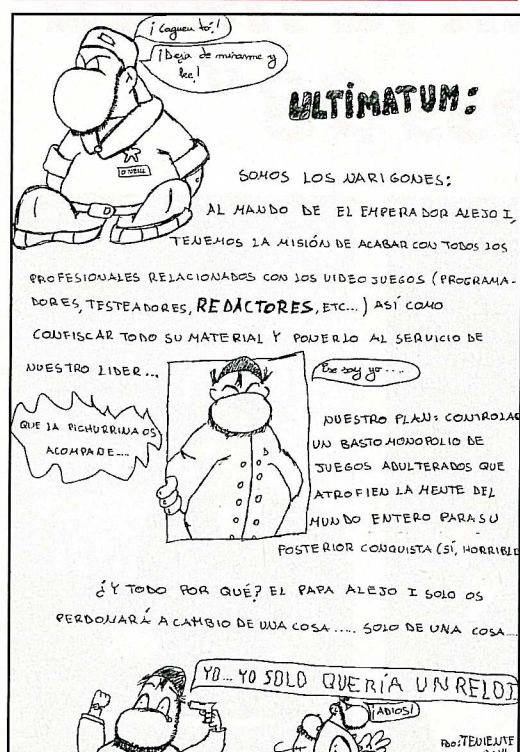 ¡Cagüen tó!
¡Deja de mirarme y
lee!
ULTÍMATUM:
O'NEILL
SOMOS LOS NARIGONES:
AL MANDO DE EL EMPERADOR ALEJO I,
TENEMOS LA MISIÓN DE ACABAR CON TODOS LOS
PROFESIONALES RELACIONADOS CON LOS VIDEOJUEGOS (PROGRAMA-
DORES, TESTEADORES, REDACTORES, ETC...) ASÍ COMO
CONFISCAR TODO SU MATERIAL Y PONERLO AL SERVICIO DE
NUESTRO LIDER...
Ese soy yo....
QUE LA PICHURRINA OS
ACOMPAÑE....
NUESTRO PLAN: CONTROLAR
UN BASTO MONOPOLIO DE
JUEGOS ADULTERADOS QUE
ATROFIEN LA MENTE DEL
MUNDO ENTERO PARA SU
POSTERIOR CONQUISTA (SÍ, HORRIBLE
¿Y TODO POR QUÉ? EL PAPA ALEJO I SOLO OS
PERDONARÁ A CAMBIO DE UNA COSA..... SOLO DE UNA COSA...
YO... YO SOLO QUERÍA UN RELOJ
¡ADIOS!
POR: TENIENTE